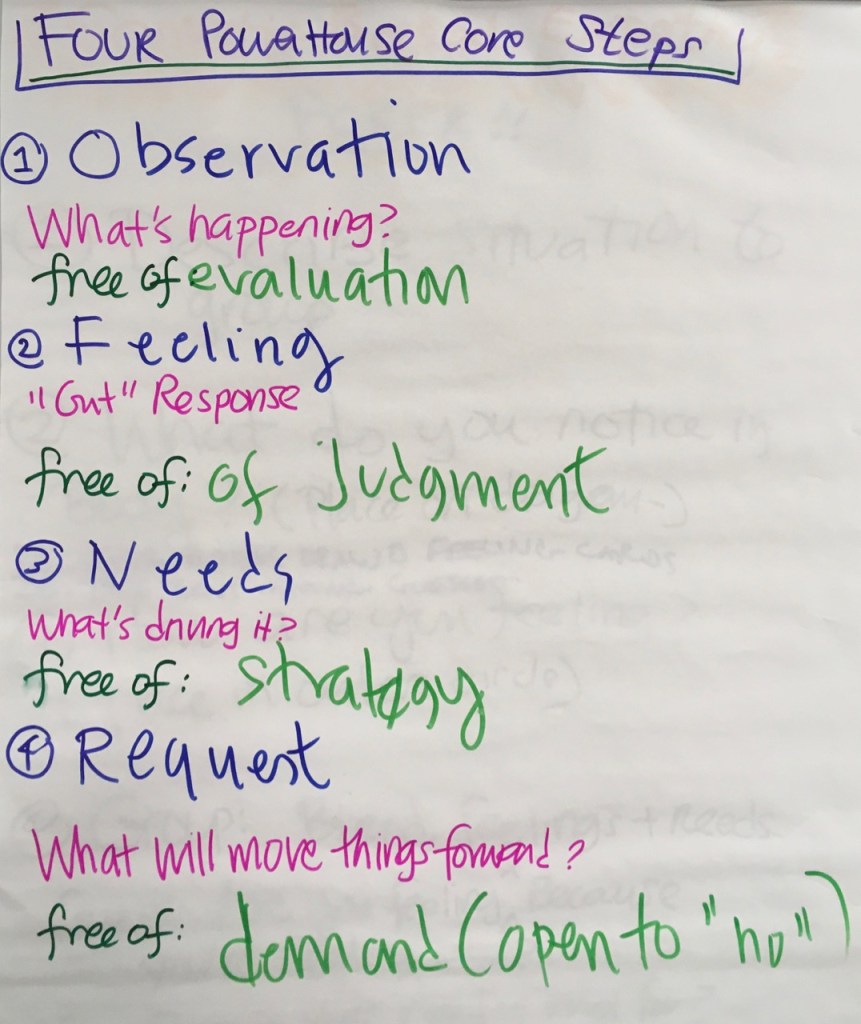 Four PowaHouse Core Steps
① Observation
What's happening?
free of evaluation
② Feeling
"Gut" Response
free of: of judgment
③ Needs
What's driving it?
free of: strategy
④ Request
What will move things forward?
free of: demand (open to "no")